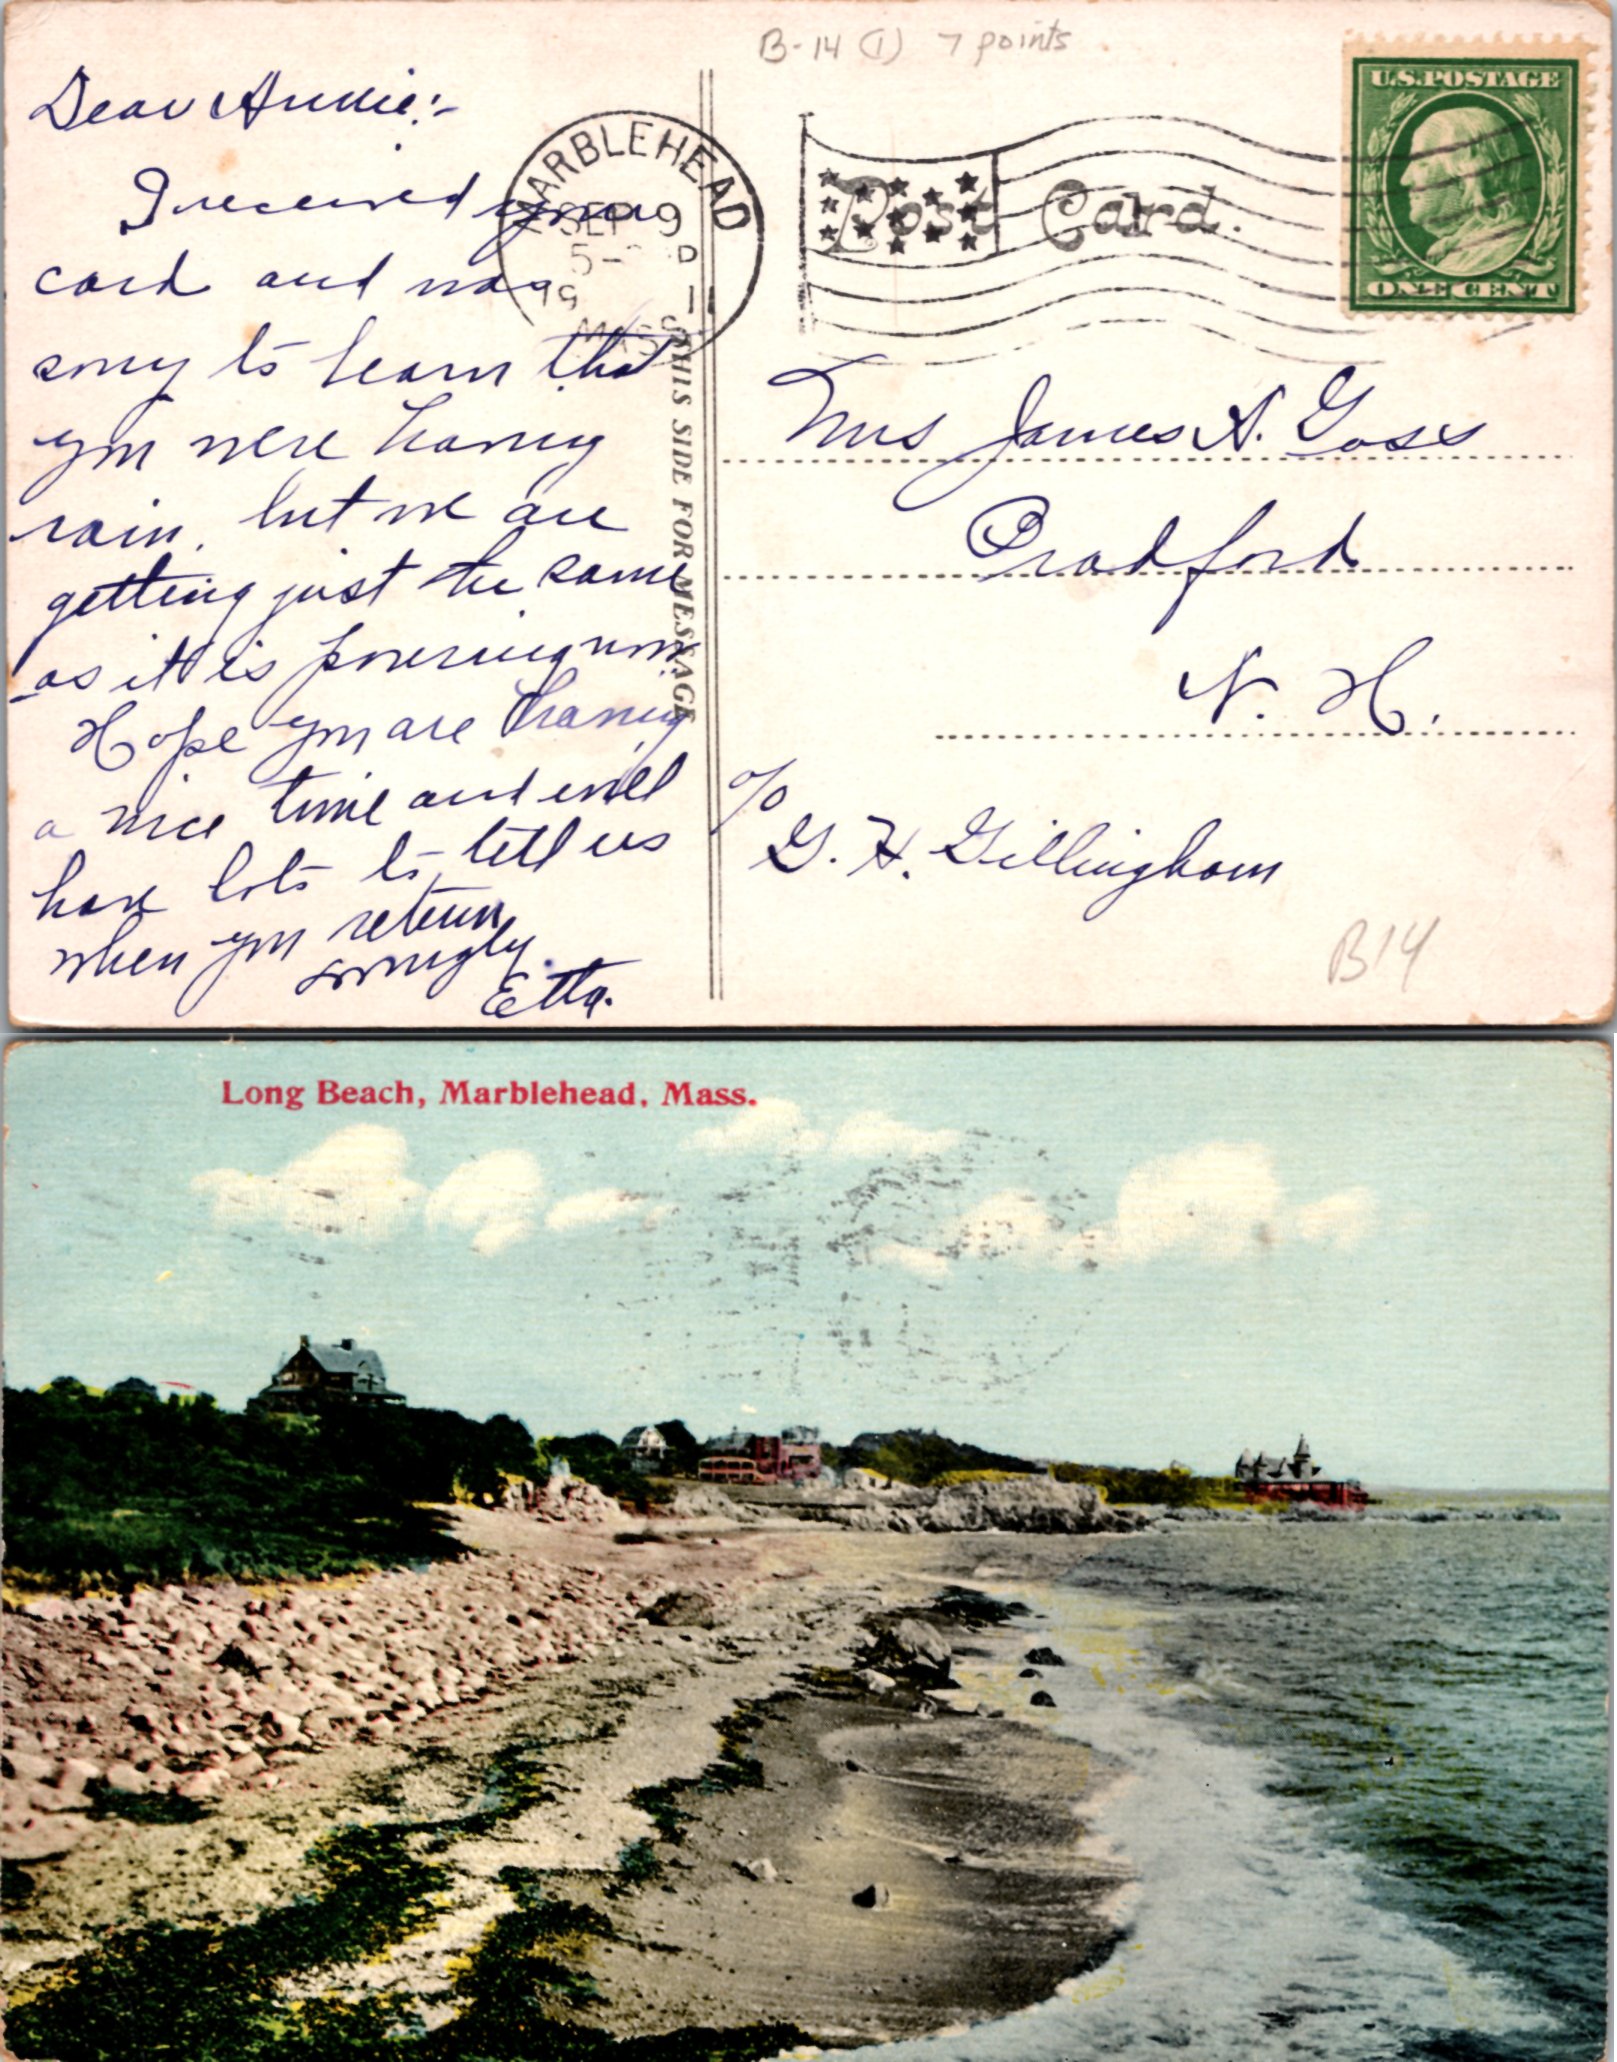 B-14 (1) 7 points
Dear Annie:-
I received your
card and was
sorry to learn that
you were having
rain, but we are
getting just the same
as it is pouring now.
Hope you are having
a nice time and will
have lots to tell us
when you return
Etta.
MARBLEHEAD
SEP 9
5-
19 1
MASS
THIS SIDE FOR MESSAGE
Post Card.
U.S.POSTAGE
ONE CENT
Mrs James A. Goss
Bradford
N. H.
c/o
G. H. Gillingham
B14
Long Beach, Marblehead, Mass.